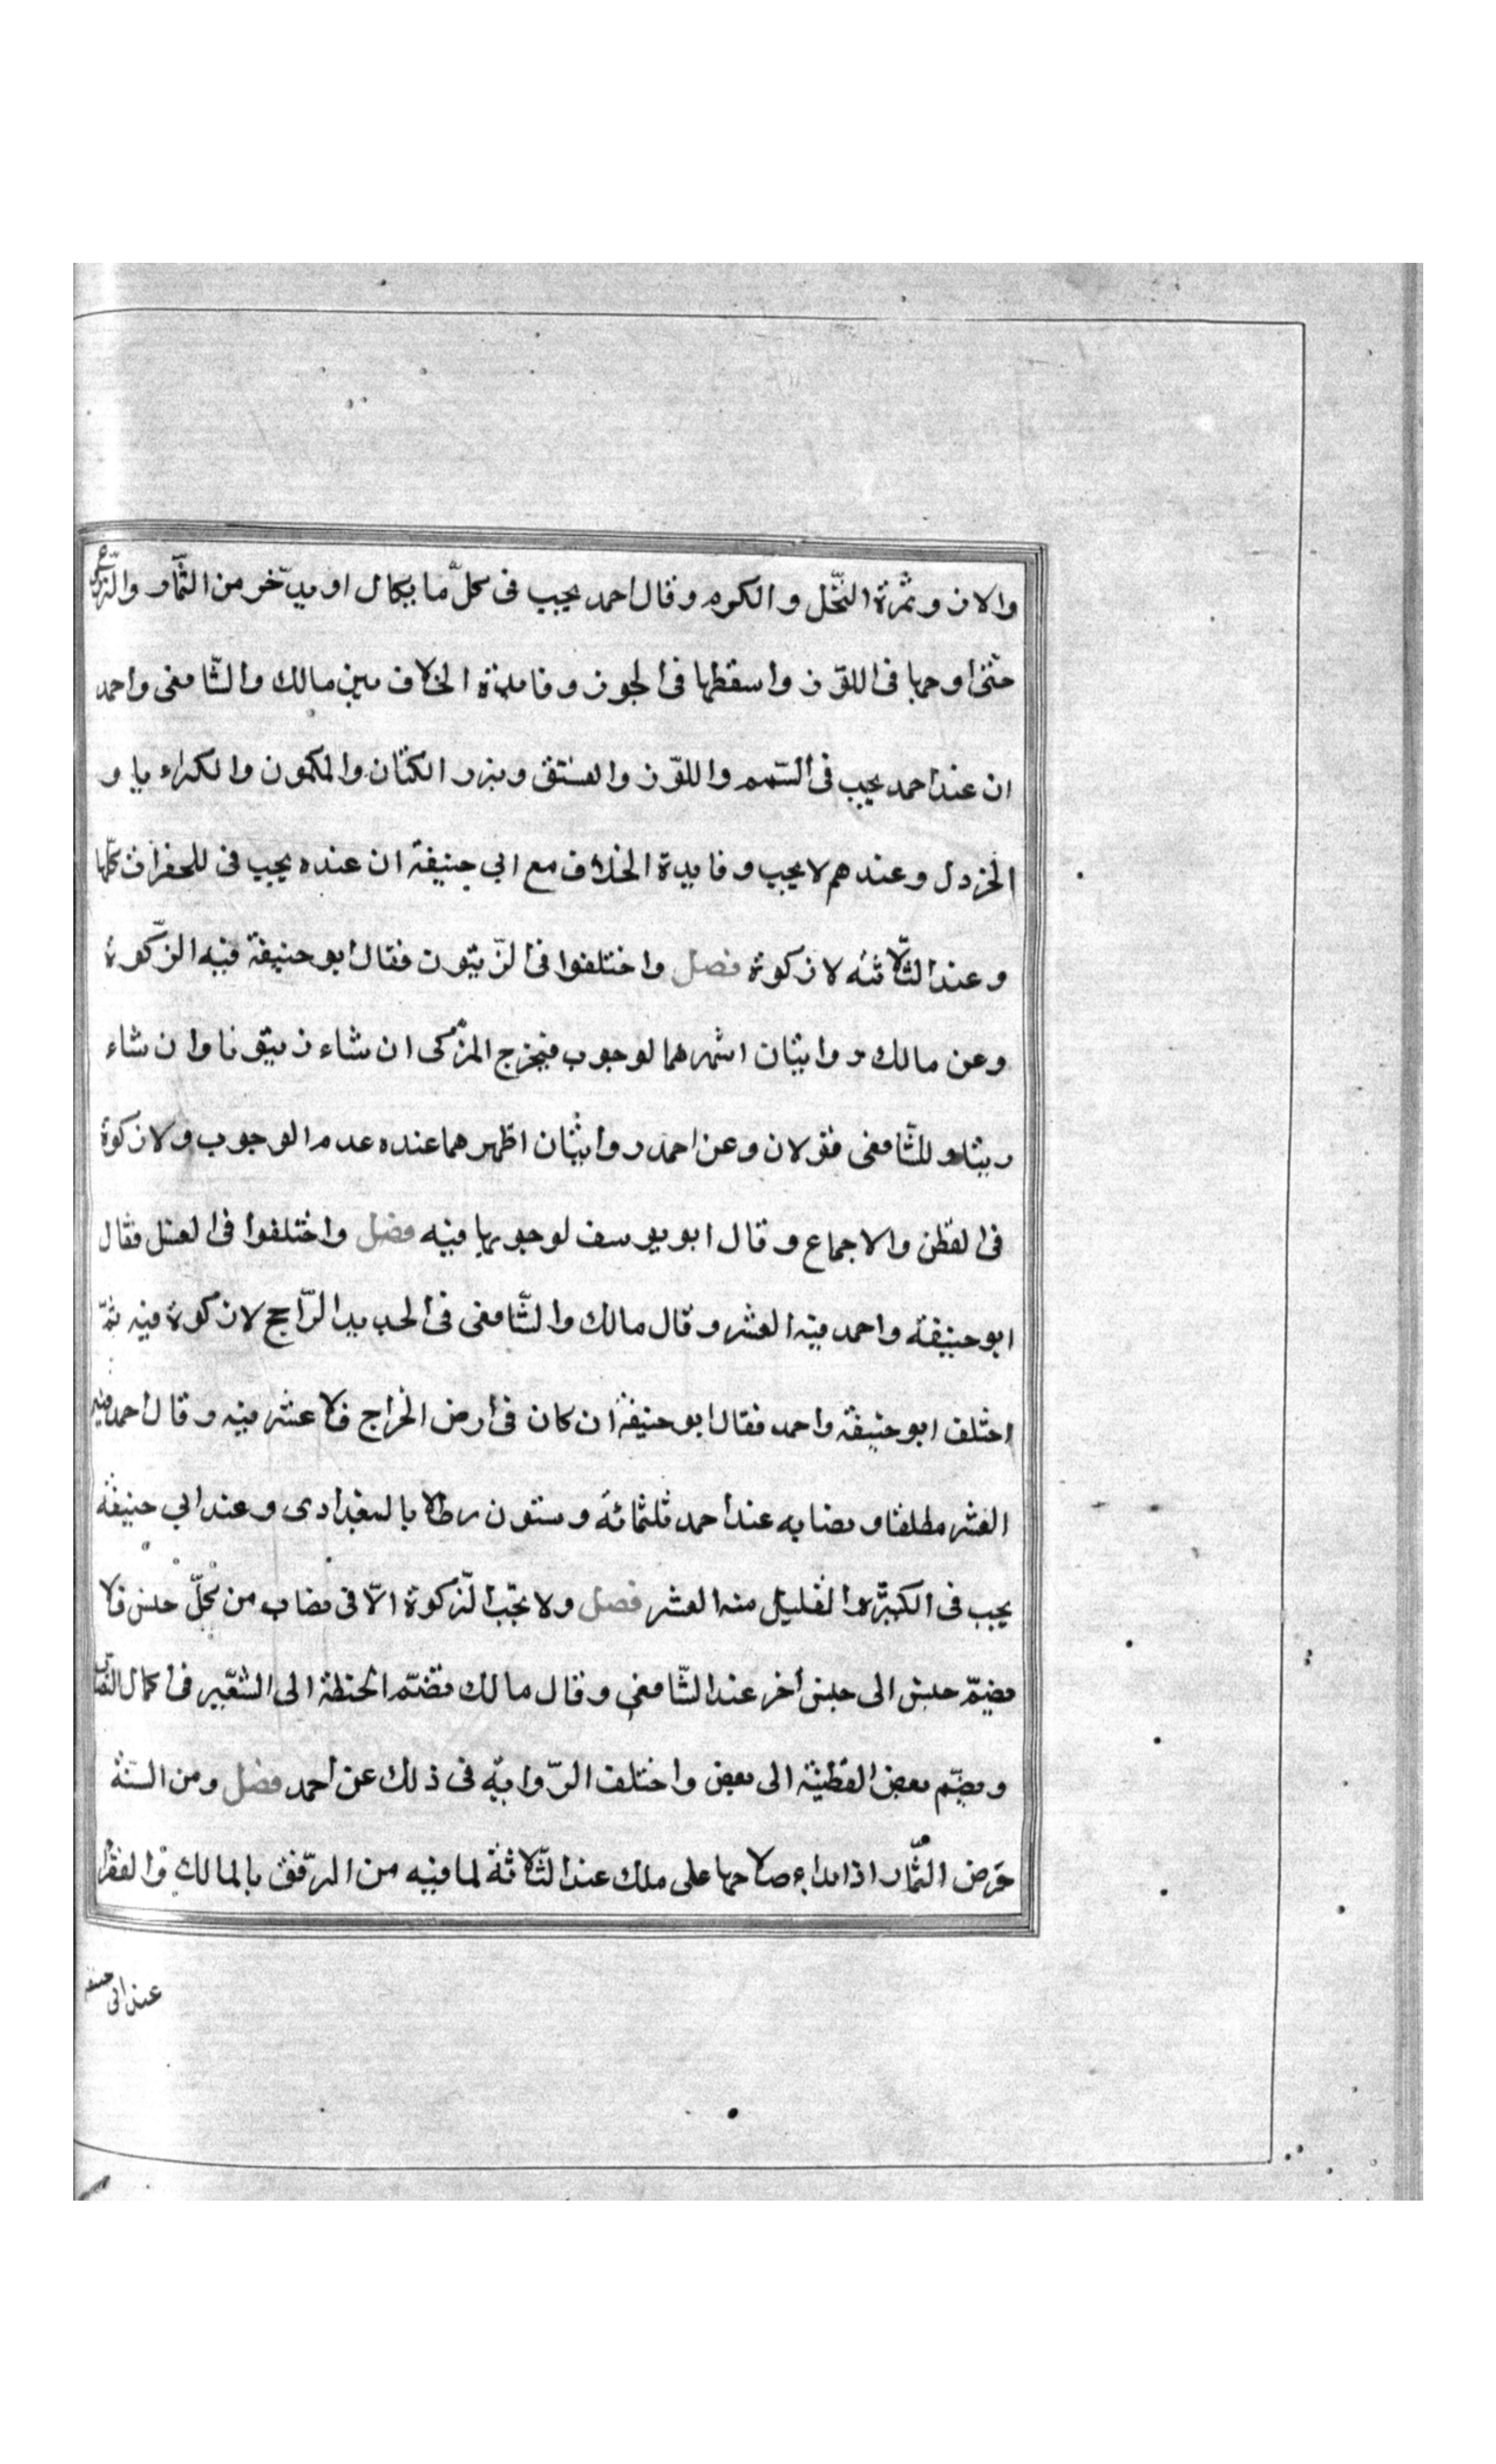 والارز وثمرة النّخل والكرم وقال احمد يجب فى كلّ ما يكال او يدّخر من الثّمار والزّرع
حتّى اوجبها فى اللوّز واسقطها فى الجوز وفايدة الخلاف بين مالك والشّافعى واحمد
ان عند احمد يجب فى السّمسم واللوّز والفستق وبزر الكتان والكمون والكراويا و
الخردل وعندهم لا يجب وفايدة الخلاف مع ابي حنيفة ان عنده يجب فى للخضراوات كلّها
وعند الثّلاثه لا زكوة فصل واختلفوا فى الزّيتون فقال ابو حنيفة فيه الزّكوة
وعن مالك روايتان اشهرهما لوجوب فيخرج المزّكى ان شاء زيتونا وان شاء
زيتا وللشّافعى قولان وعن احمد روايتان اظهرهما عنده عدم الوجوب ولا زكوة
فى القطن والاجماع وقال ابو يوسف لوجوبها فيه فصل واختلفوا فى العسل فقال
ابو حنيفة واحمد فيه العشر وقال مالك والشّافعى فى الجديد الرّاجح لا زكوة فيه ثمّ
اختلف ابو حنيفة واحمد فقال ابو حنيفة ان كان فى أرض الخراج فلا عشر فيه وقال احمد فيه
العشر مطلقا ونصابه عند احمد ثلثمائة وستون رطلا بالبغدادى وعند ابي حنيفة
يجب فى الكثير والقليل منه العشر فصل ولا يجب الزّكوة الّا فى نصاب من كلّ جنس فلا
يضمّ جنس الى جنس أخر عند الشّافعي وقال مالك تضمّ الحنطة الى الشّعير فى اكمال النصاب
ويضمّ بعض القطنيّة الى بعض واختلف الرّواية فى ذلك عن أحمد فصل ومن السنّة
خرص الثّمار اذا بداء صلاحها على ملك عند الثّلاثة لما فيه من الرّفق بالمالك والفقراء
عند ابى حنيفه